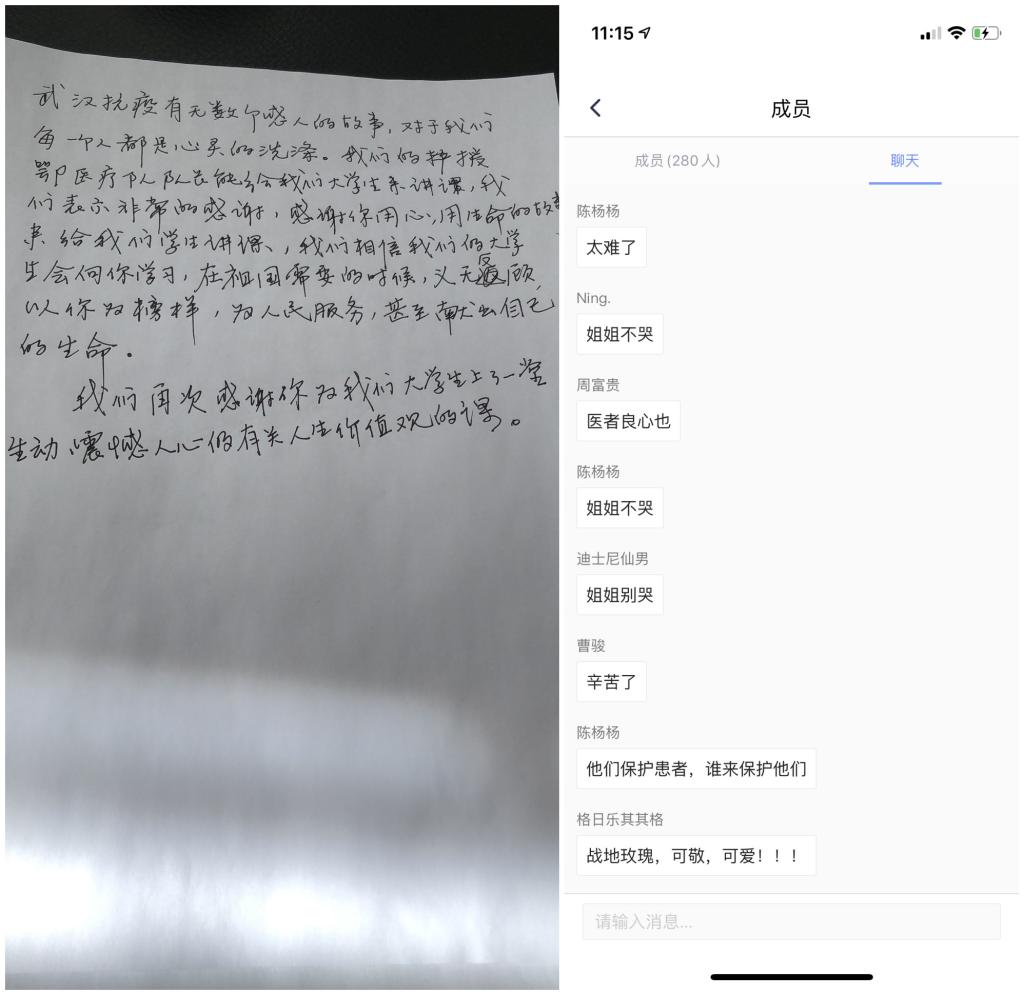 武汉抗疫有无数个感人的故事,对于我们
每一个人都是心灵的洗涤。我们的押援
鄂医疗队队员能给我们大学生来讲课,我
们表示非常的感谢,感谢你用心、用生命的故事
来给我们学生讲课、,我们相信我们的大学
生会向你学习,在祖国需要的时候,义无反顾,
以你为榜样,为人民服务,甚至献出自己
的生命。
我们再次感谢你为我们大学生上了一堂
生动、震憾人心的有关人生价值观的课。
11:15
成员
成员(280人)
聊天
陈杨杨
太难了
Ning.
姐姐不哭
周富贵
医者良心也
陈杨杨
姐姐不哭
迪士尼仙男
姐姐别哭
曹骏
辛苦了
陈杨杨
他们保护患者,谁来保护他们
格日乐其其格
战地玫瑰,可敬,可爱!!!
请输入消息...